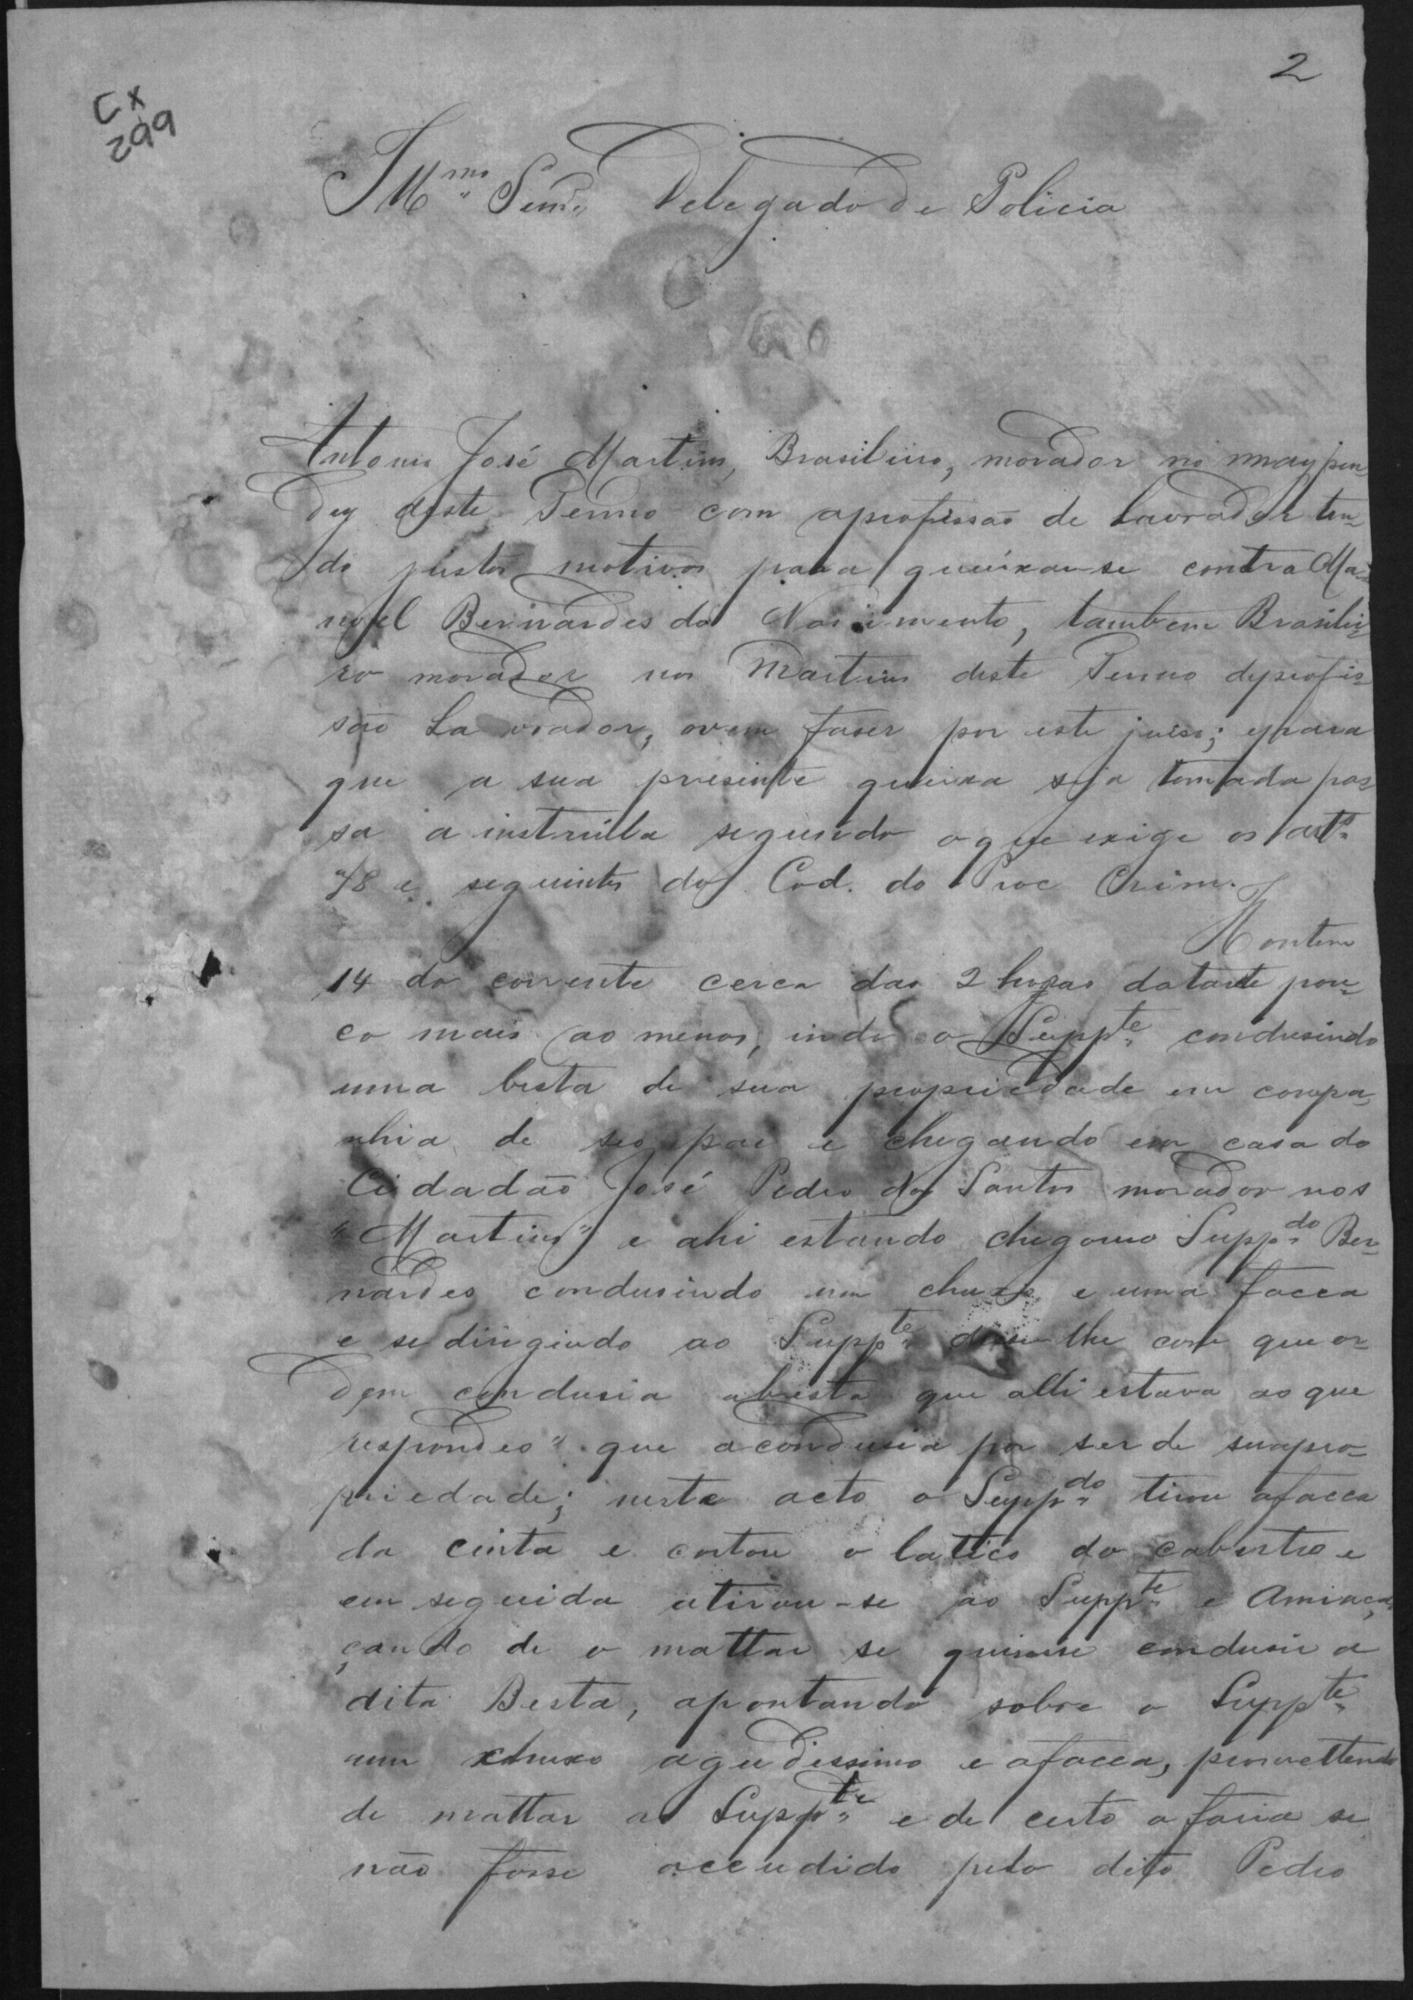 2
Cx
299
Illmo Senr. Delegado de Policia
Antonio José Martins, Brasileiro, morador no
deste Termo com aprofissão de Lavrador ten-
do justos motivos para queixar-se contra Ma-
noel Bernardes do Nascimento, tambem Brasilei-
ro morador nos Martins deste Termo deprofis-
são Lavrador, ovem faser por este juiso; epara
que a sua presente queixa seja tomada pas-
sa a instruilla segundo oque exige os arts.
78 e seguintes do Cod. do Proc Crim.
Hontem
14 do corrente cerca das 2 horas datarde pou-
co mais ao menos, indo o Suppte. condusindo
uma besta de sua propriedade em compa-
nhia de seo pai e chegando em casa do
Cidadão José Pedro dos Santos morador nos
"Martins" e ahi estando chegou o Suppdo. Ber-
nardes condusindo um chuxo e uma facca
e se dirigindo ao Suppte. disse lhe com que or-
dem condusia abesta que alli estava ao que
respondeo". que acondusia por ser de suapro-
priedade; neste acto o Suppdo. tirou afacca
da cinta e cortou o latico do cabestro e
em seguida atirou-se ao Suppte. e Amiaça-
çando de o mattar se quisesse condusir a
dita Besta, apontando sobre o Suppte.
um xhuxo agudissimo e afacca, promettendo
de mattar ao Suppte. e de certo o faria se
não fosse accudido pelo dito Pedro